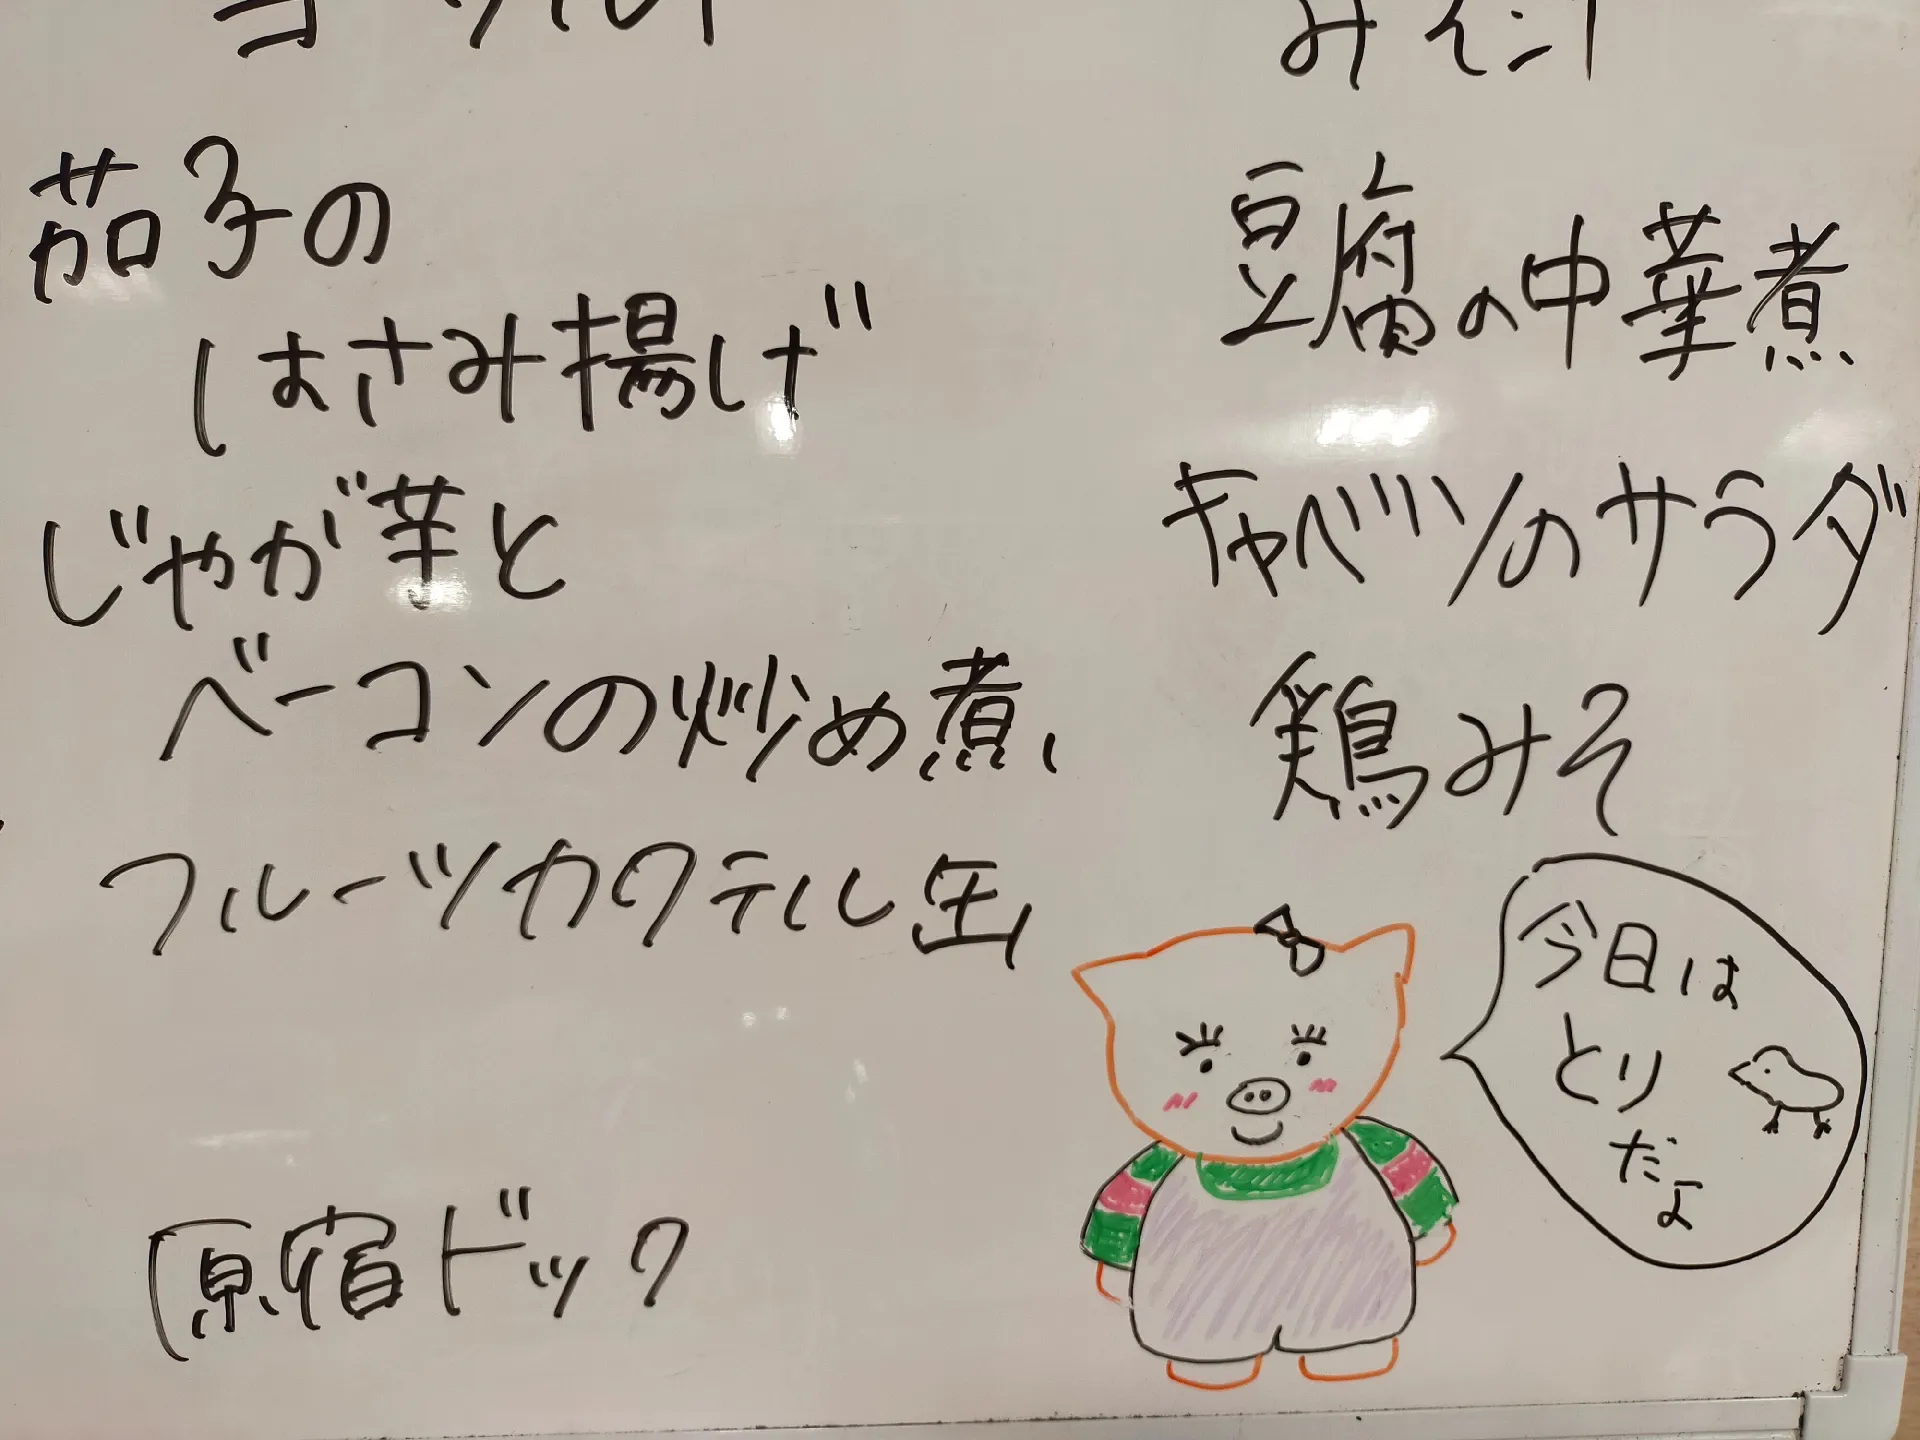 ヨーグルト
茄子の
はさみ揚げ
じゃが芋と
ベーコンの炒め煮
フルーツカクテル缶
原宿ドック
みそ汁
豆腐の中華煮
キャベツのサラダ
鶏みそ
今日は
とり
だよ